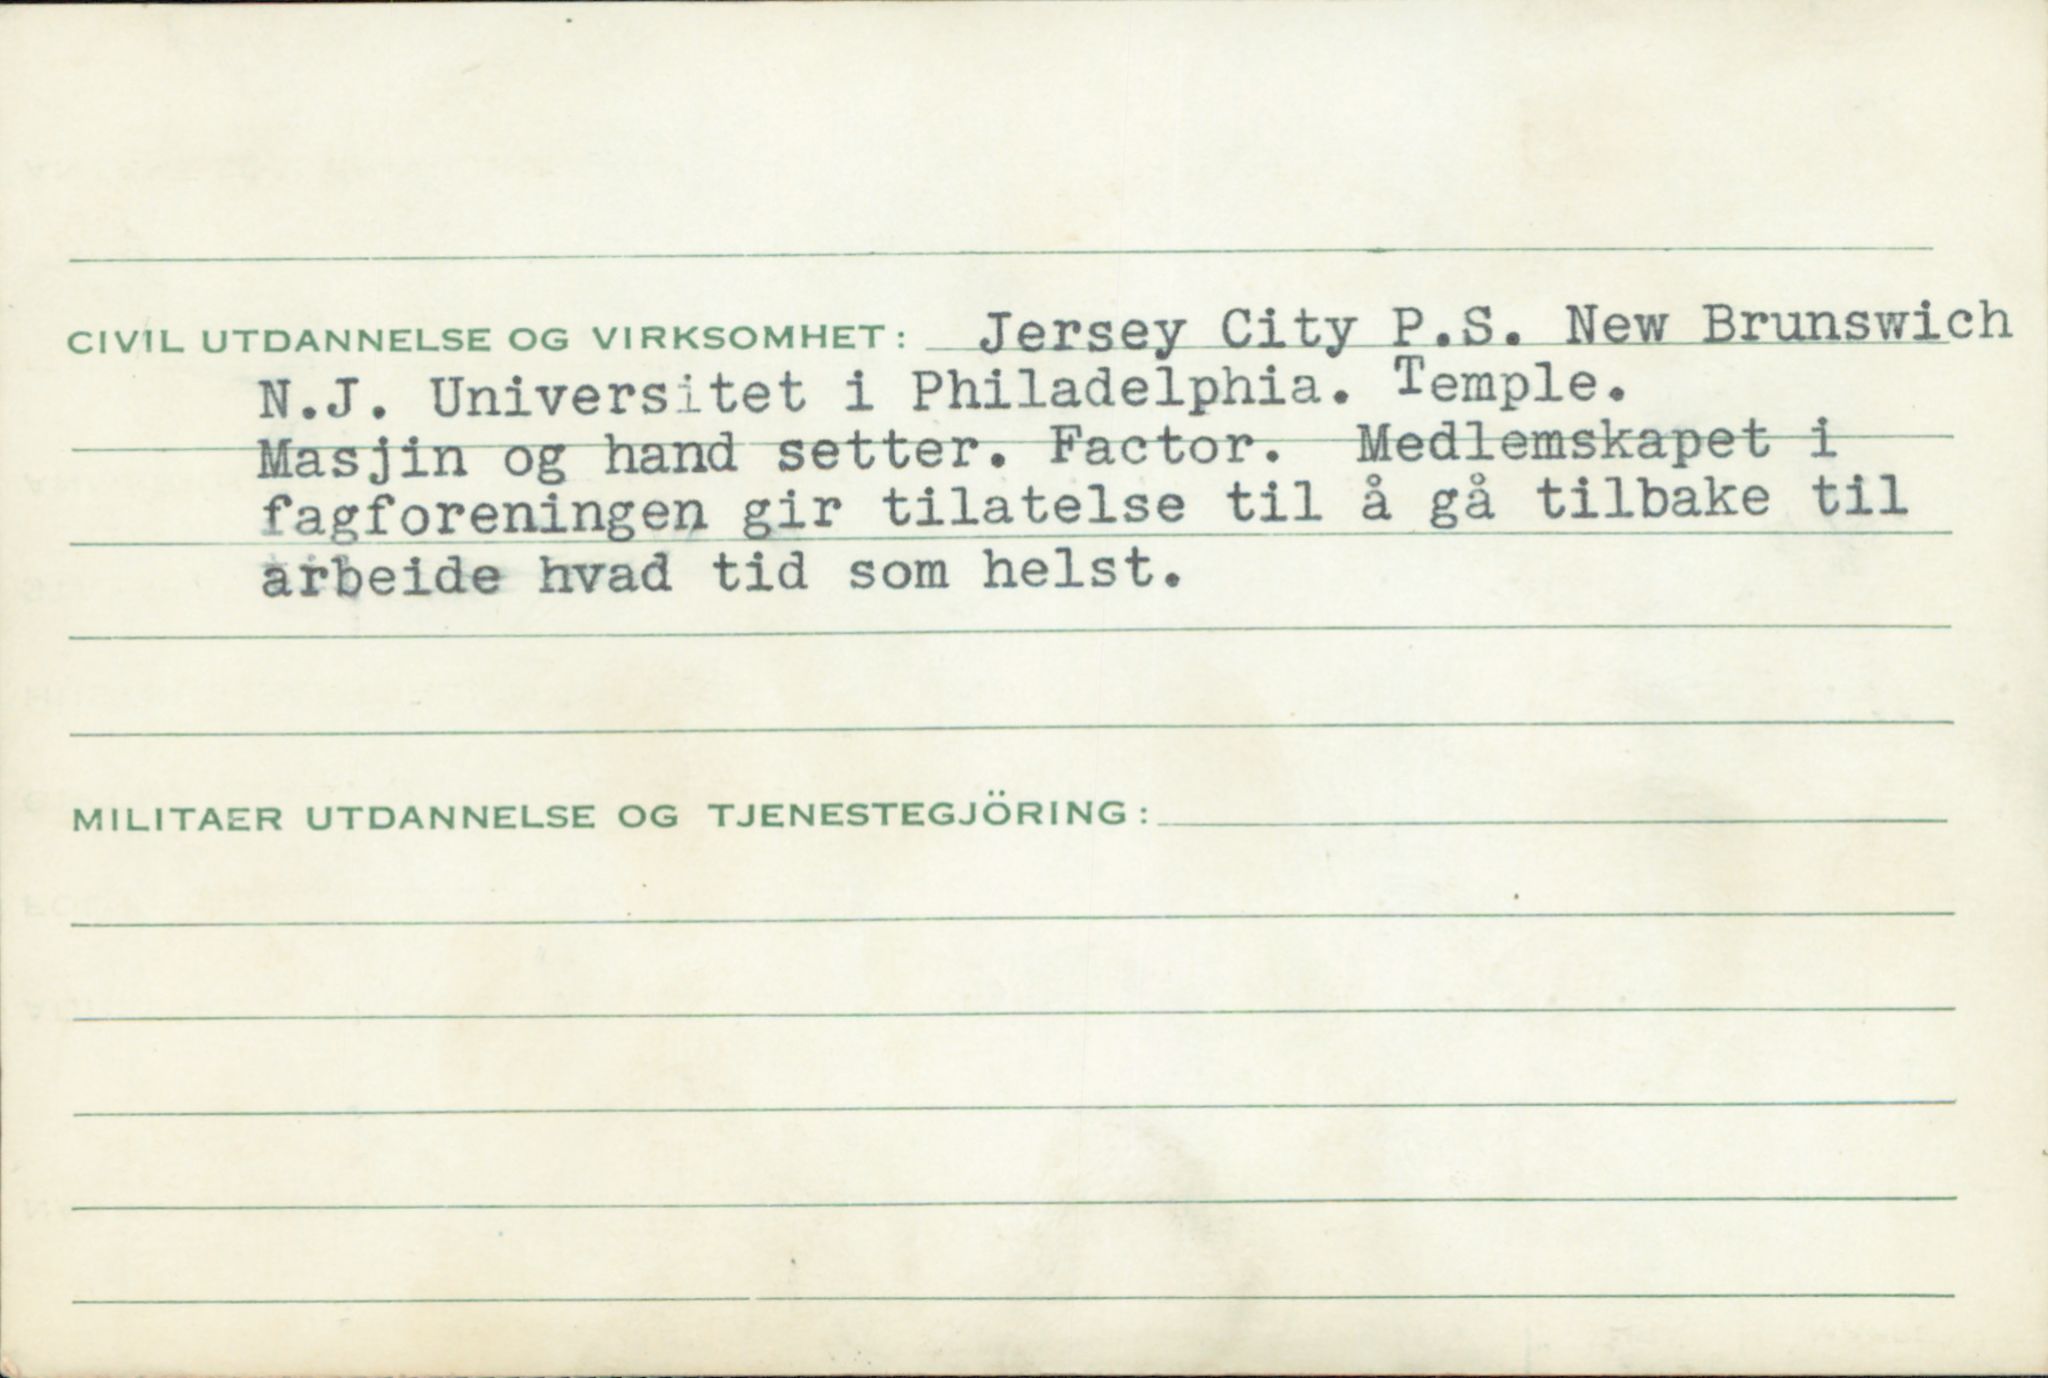 CIVIL UTDANNELSE OG VIRKSOMHET: Jersey City P.S. New Brunswich
N.J. Universitet i Philadelphia. Temple.
Masjin og hand setter. Factor. Medlemskapet i
fagforeningen gir tilatelse til å gå tilbake til
arbeide hvad tid som helst.
MILITAER UTDANNELSE OG TJENESTEGJÖRING: